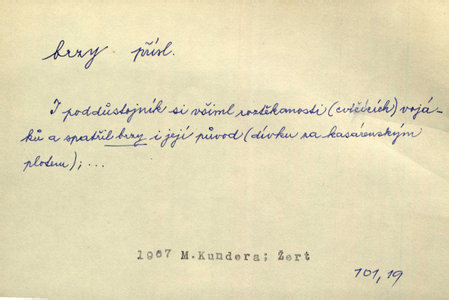 brzy přísl.
I poddůstojník si všiml roztěkanosti (cvičících) vojá-
ků a spatřil brzy i její původ (dívku za kasárenským
plotem); ...
1967 M.Kundera; Žert
101,19